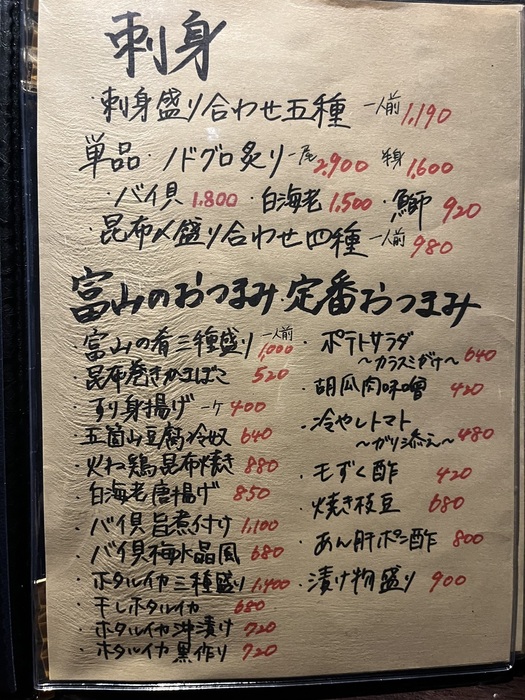 刺身
・刺身盛り合わせ五種 一人前 1,190
単品・ノドグロ炙り 一尾 2,900 半身 1,600
・バイ貝 1,800 ・白海老 1,500 ・鰤 920
・昆布〆盛り合わせ四種 一人前 980
富山のおつまみ・定番おつまみ
富山の肴三種盛り 一人前 1,000
昆布巻きかまぼこ 520
すり身揚げ 一ケ 400
五箇山豆腐冷奴 640
火ね鶏昆布焼き 880
白海老唐揚げ 850
バイ貝旨煮付け 1,100
バイ貝梅水晶風 680
ホタルイカ三種盛り 1,400
干しホタルイカ 680
ホタルイカ沖漬け 720
ホタルイカ黒作り 720
・ポテトサラダ
〜カラスミがけ〜 640
・胡瓜肉味噌 420
・冷やしトマト
〜ガリ添え〜 480
・もずく酢 420
・焼き枝豆 680
・あん肝ポン酢 800
・漬け物盛り 900